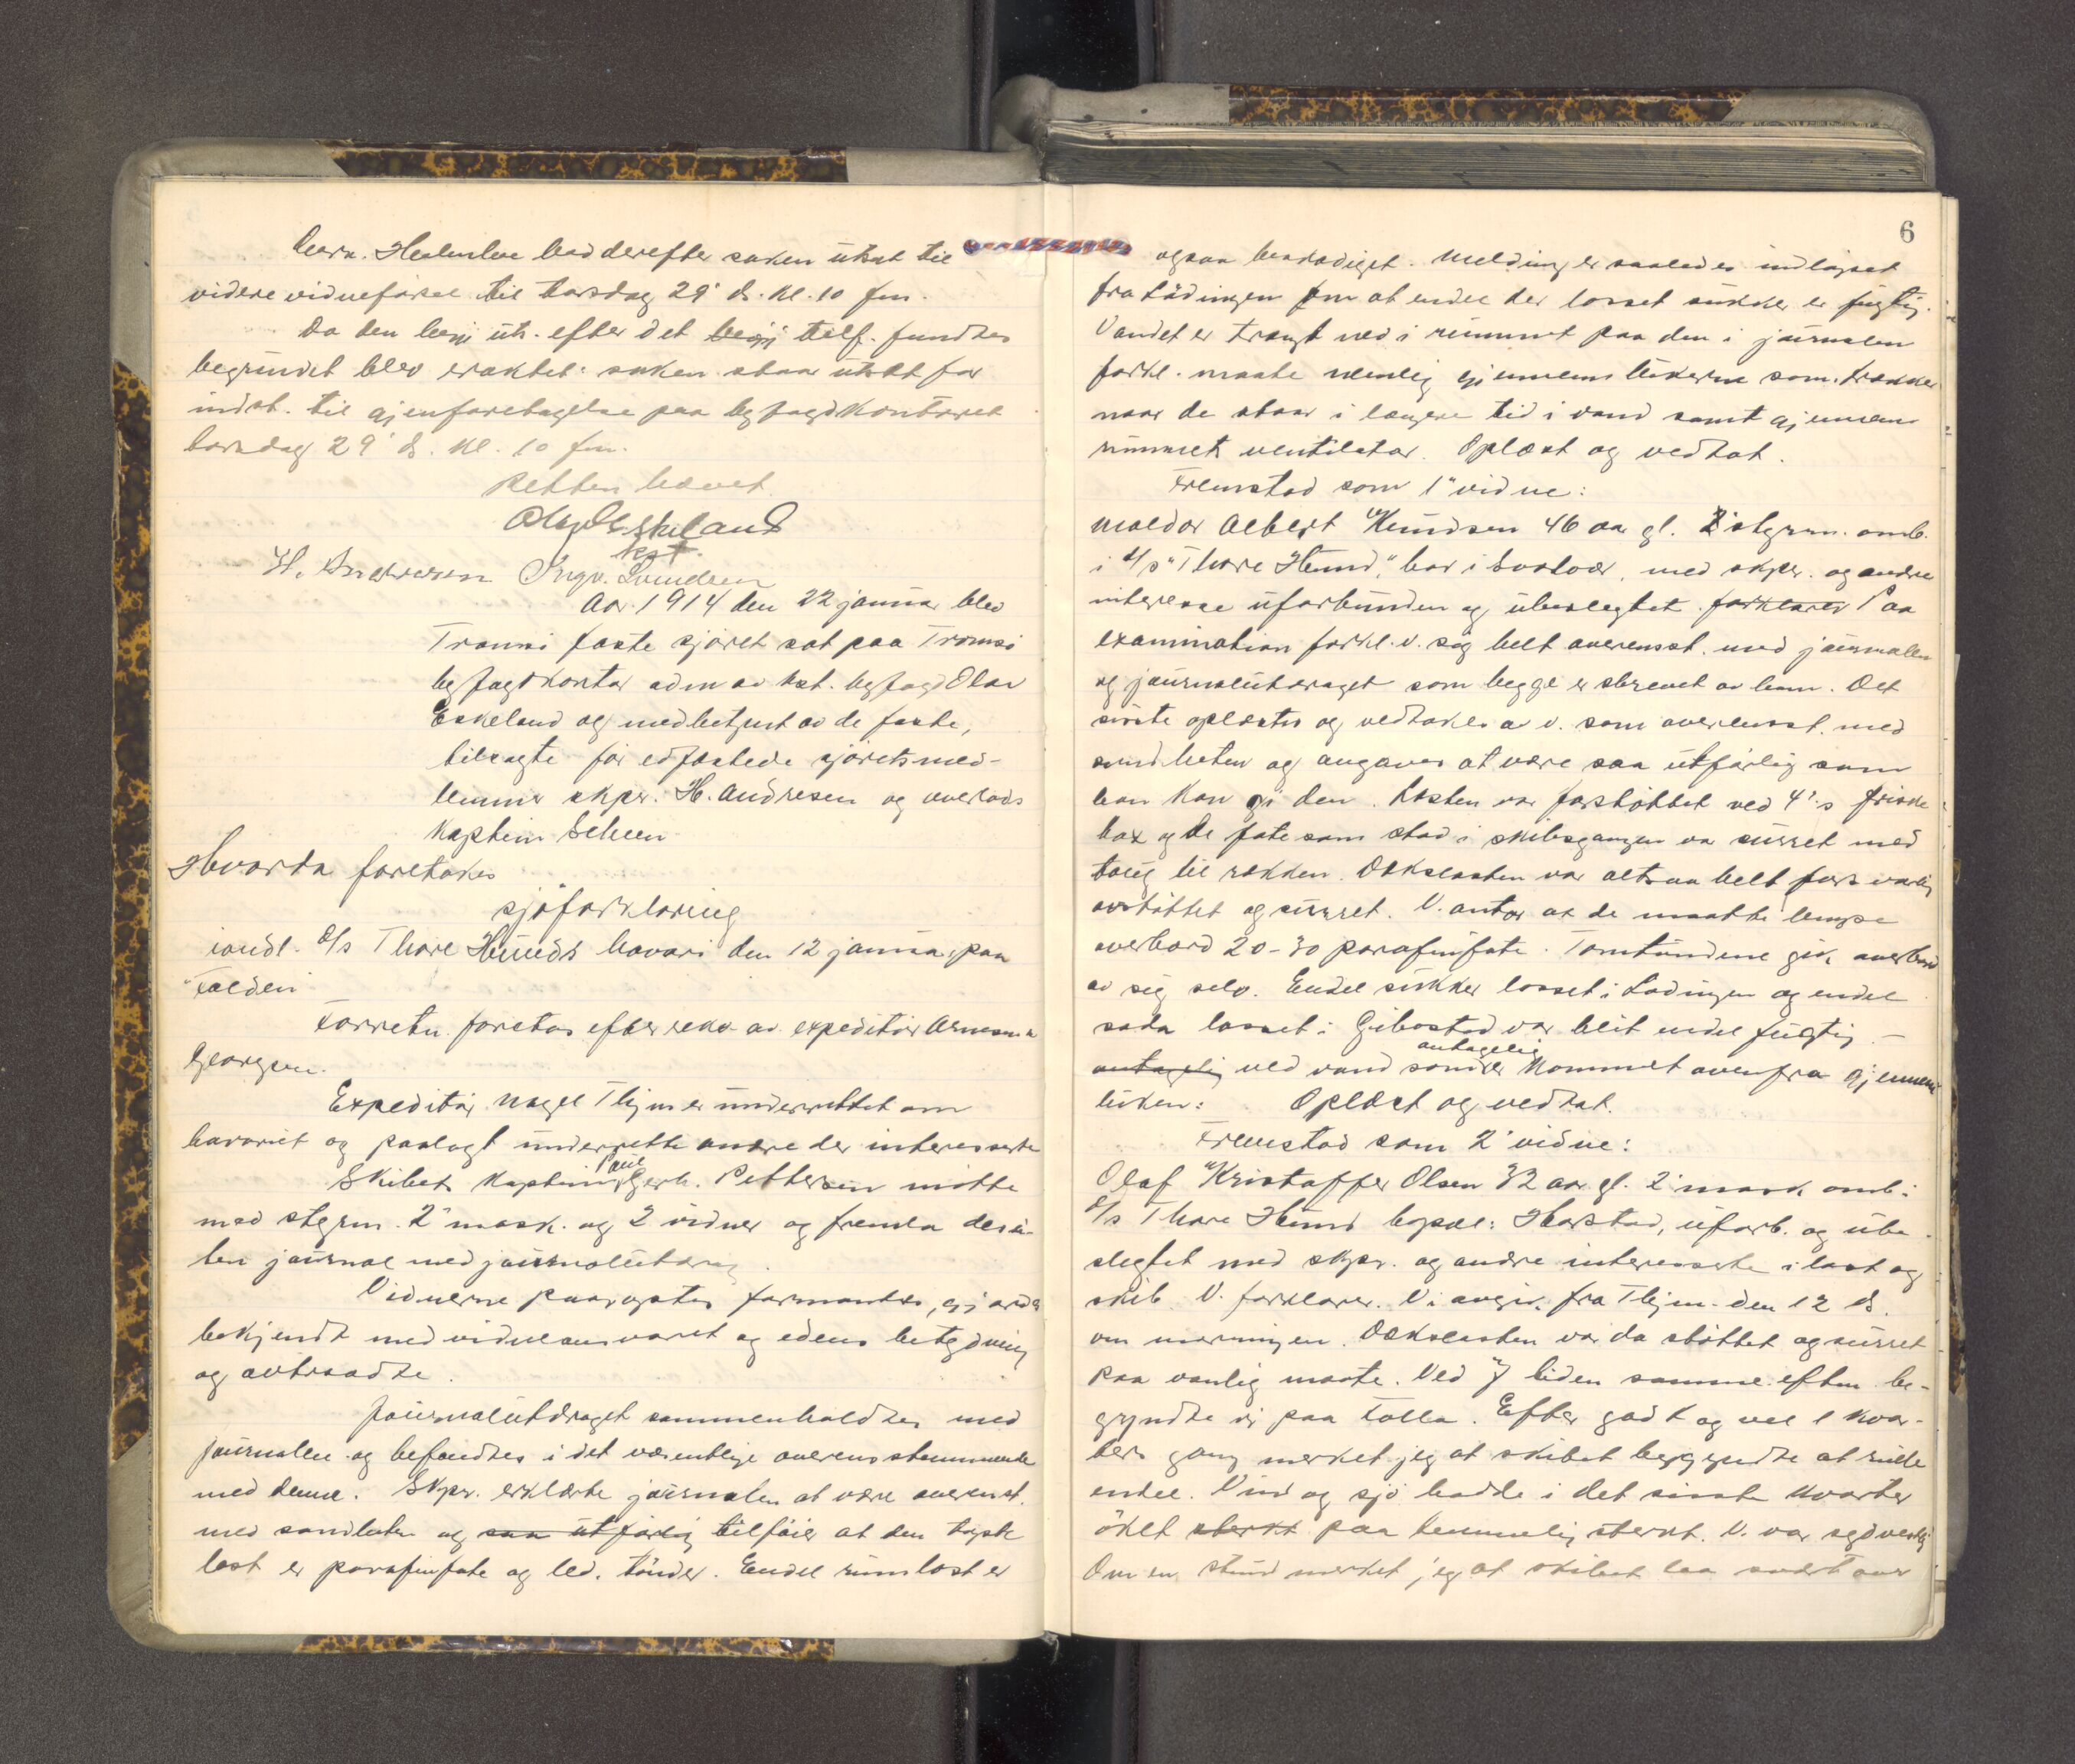 derefter saken utsat til
videre vidneførsel til torsdag 29' ds. kl. 10 fm.
Da den begj. uts. efter det tilf. fundtes
begrundet blev eraktet: saken staar utsatt for
indst. til gjenforetagelse paa byfogdkontoret
torsdag 29' ds. kl. 10 fm.
Retten hævet
Olav Eskeland
kst.
H. Andresen Ingv. Svendsen
Aar 1914 den 22 januar blev
Tromsö faste sjöret sat paa Tromsö
byfogdkontor adm av kst. byfogd Olav
Eskeland og medbetjent av de faste,
tilsagte før edfæstede sjöretsmed-
lemmer skpr. H. Andresen og overlods
Kaptein Scheen
Hvorda foretokes
sjøforklaring
i anl. D/s Thore Hunds havari den 12 januar paa
Folden
Forretn. foretas efter rekv. av expeditør Arnesen &
Georgsen.
Expeditør Nagel Thjem er underrettet om
havariet og paalagt underrette andre der interesserte
Skibets Kaptein Paul Gerh. Pettersen mötte
med stgrm. 2' mask. og 2 vidner og fremla desu-
ten journal med journalutdrag.
Vidnerne paaroptes formantes, gjordes
bekjendt med vidneansvaret og edens betydning
og avtraadte.
Journalutdraget sammenholdtes med
journalen og befandtes i det væsentlige overensstemmende
med denne. Skpr. erklærte journalen at være overenst.
med sandheten og saa utførlig tilföier at den tapte
last er parafinfate og led. tönder. Endel rumlast er
6
ogsaa beskadiget. Melding er saaledes indløpet
fra Lödingen om at endel der losset sukker er fugtig.
Vandet er trængt ned i rummet paa den i journalen
forkl. maate nemlig gjennem lukerne som trækker
naar de staar i længere tid i vand samt gjennem
rummets ventilator. Oplæst og vedtat.
Fremstod som 1' vidne:
Maldor Albert Knudsen 46 aar gl. stgrm. omb.
i D/s "Thore Hund," bor i Svolvær, med skpr. og andre
interesse uforbunden og ubeslegtet. forklarer Paa
examination forkl. v. sig helt overensst. med journalen
og journalutdraget som begge er skrevet av ham. Det
sidste oplæstes og vedtokes av v. som overensst. med
sandheten og angaves at være saa utførlig som
han kan gi den. Lasten var forstöttet ved 4" s friske
box og de fate som stod i skibsgangen var surret med
taug til rækken. Dækslasten var altsaa helt forsvarlig
avstöttet og surret. V. antar at de maatte lempe
overbord 20-30 parafinfate. Tomtöndene gik overbord
av sig selv. Endel sukker losset i Lödingen og endel
soda losset i Gibostad var blit endel fugtig -
antagelig ved vand som er antagelig kommet ovenfra gjennem
luken: Oplæst og vedtat.
Fremstod som 2' vidne:
Olaf Kristoffer Olsen 32 aar gl. 2' mask. omb. i
D/s Thore Hund bopæl: Harstad, uforb. og ube-
slegtet med skpr. og andre interesserte i last og
skib. V. forklarer. Vi avgik fra Thjem den 12 ds.
om morningen. Dækslasten var da stöttet og surret
paa vanlig maate. Ved 7 tiden samme efterm. be-
gyndte vi paa Folla. Efter godt og vel 1 kvar-
ters gang merket jeg at skibet begyndte at rulle
endel. Vind og sjö hadde i det sidste kvarter
öket sterkt paa temmelig sterkt. V. var sydvestlig
Om en stund merket jeg at skibet laa svært over